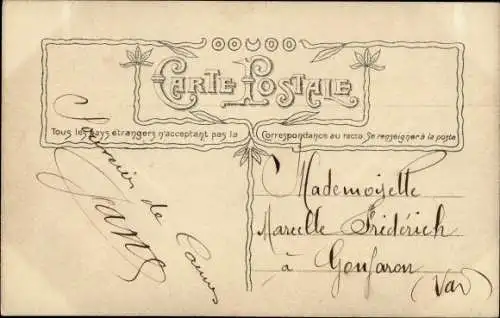 CARTE POSTALE
Tous les pays étrangers n'acceptent pas la Correspondance au recto. Se renseigner à la poste
Souvenir de Cannes
Mademoiselle
Marcelle Frédérich
à Gonfaron
(Var)